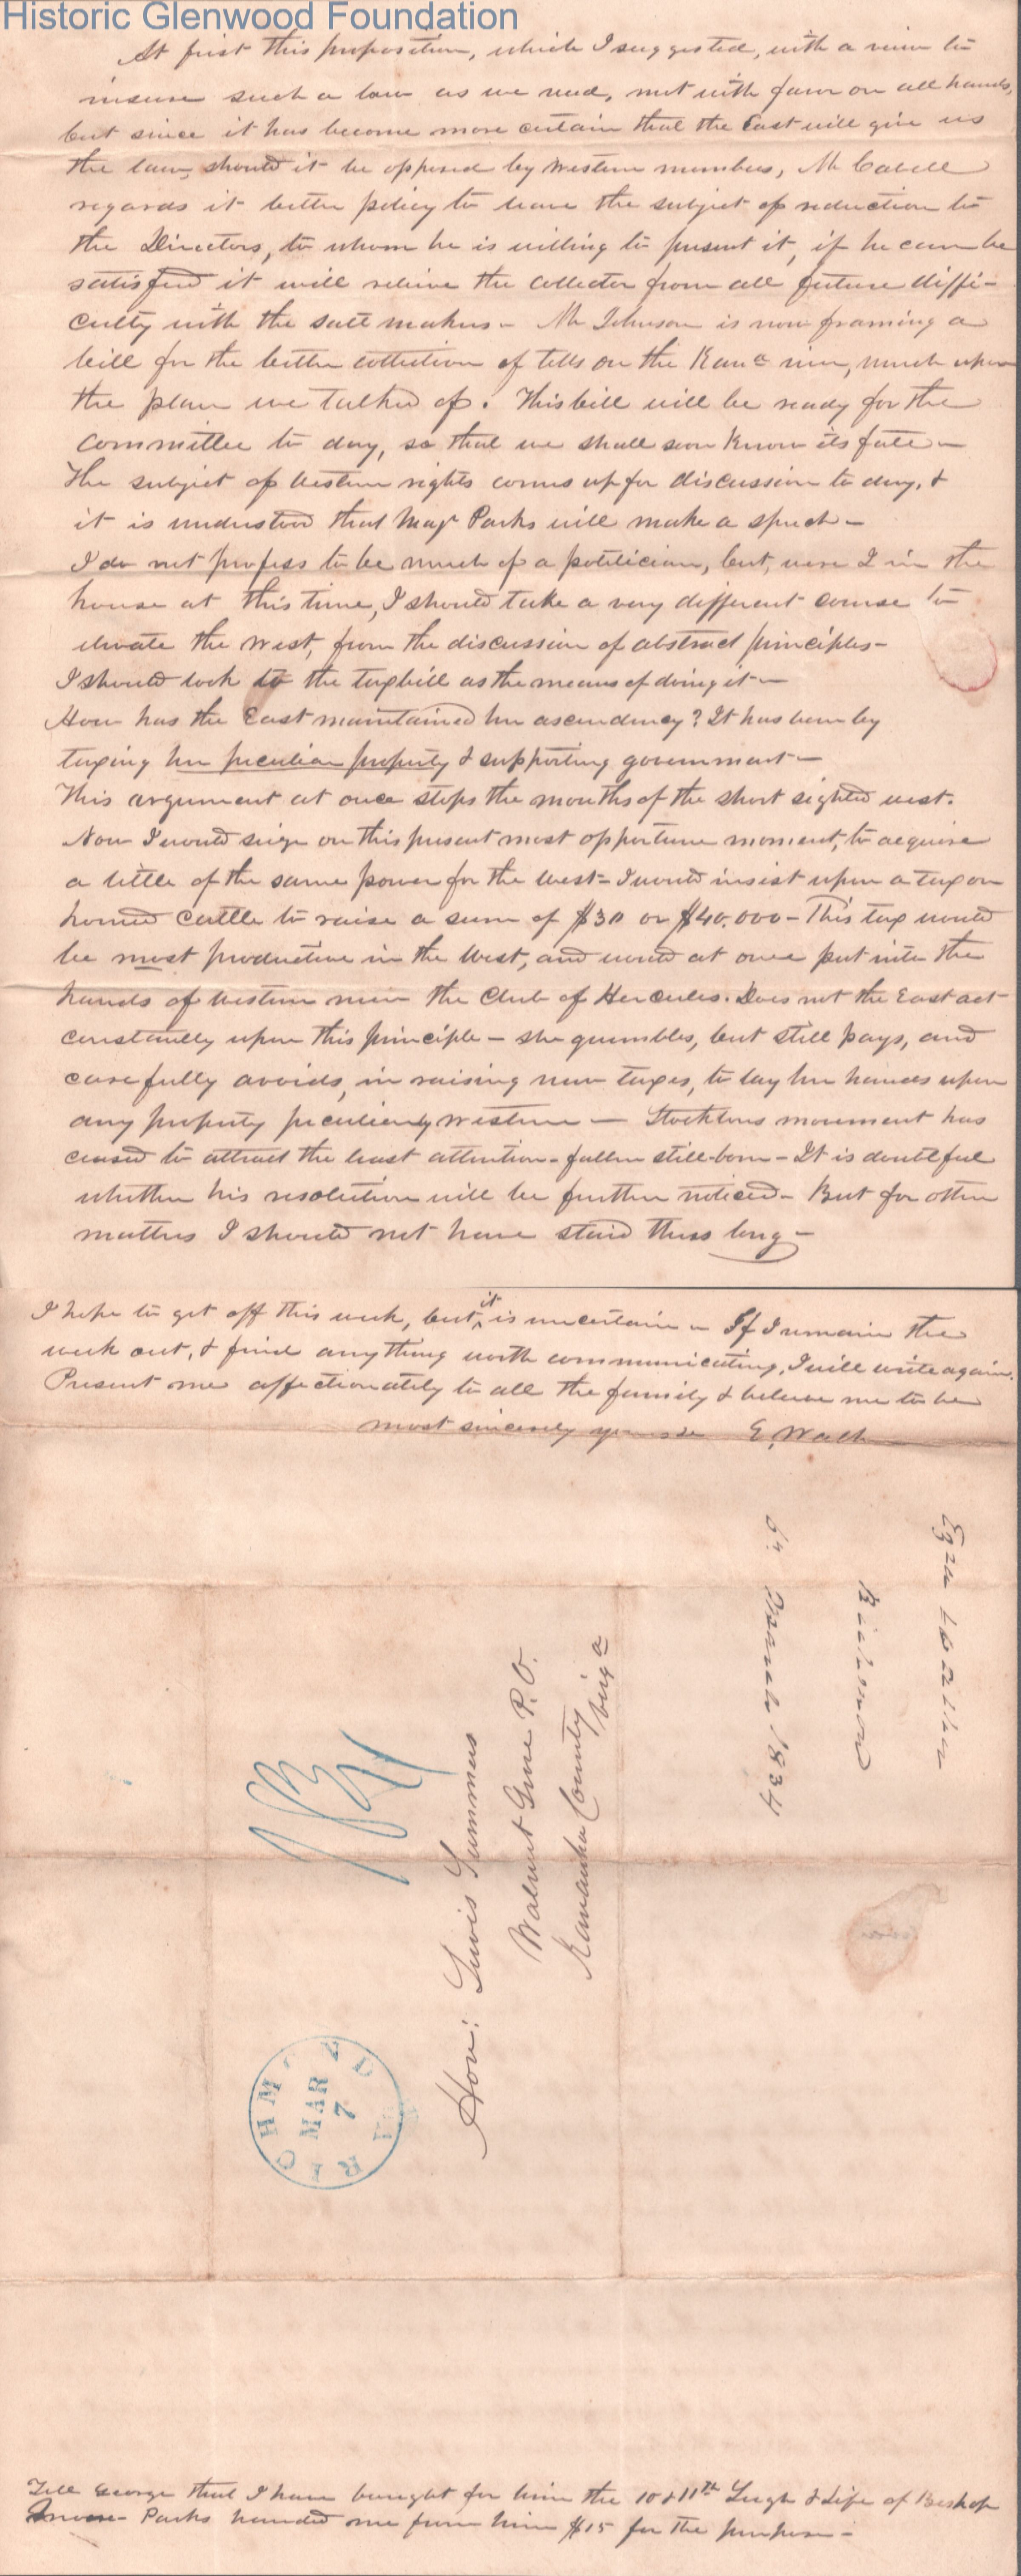 Historic Glenwood Foundation
At first this proposition, which I suggested, with a view to
insure such a law as we need, met with favor on all hands,
but since it has become more certain that the East will give us
the law, should it be opposed by western members, Mr Cabell
regards it better policy to leave the subject of reduction to
the Directors, to whom he is willing to present it, if he can be
satisfied it will relieve the collector from all future diffi-
culty with the salt makers - Mr Johnson is now framing a
bill for the better collection of tolls on the Kana river, much upon
the plan we talked of. This bill will be ready for the
committee to day, so that we shall soon know its fate -
The subject of western rights comes up for discussion to day, &
it is understood that Majr Parks will make a speech -
I do not profess to be much of a politician, but, were I in the
house at this time, I should take a very different course to
elevate the west, from the discussion of abstract principles -
I should look to the tax bill as the means of doing it -
How has the East maintained her ascendency? It has been by
taxing her peculiar property & supporting government -
This argument at once stops the mouths of the short sighted west.
Now I would seize on this present most opportune moment, to acquire
a little of the same power for the West - I would insist upon a tax on
horned cattle to raise a sum of $30 or $40.000 - This tax would
be most productive in the West, and would at once put into the
hands of western men the Club of Hercules. Does not the East act
constantly upon this principle - she grumbles, but still pays, and
carefully avoids, in raising new taxes, to lay her hands upon
any property peculiarly western - Stocktons movement has
ceased to attract the least attention - fallen still-born - It is doubtful
whether his resolution will be further noticed - But for other
matters I should not have staid thus long -
I hope to get off this week, but it is uncertain - If I remain the
week out, & find anything worth communicating, I will write again.
Present me affectionately to all the family & believe me to be
most sincerely yours E. Walk
Ezra Walker
Richmond
6th March 1834
Hon: Lewis Summers
Walnut Grove P.O.
Kanawha County
Virga
RICHMOND
MAR
7
VA
Tell George that I have bought for him the 10 & 11th Leigh & Life of Bishop
Parks handed me from him $15 for the purpose -